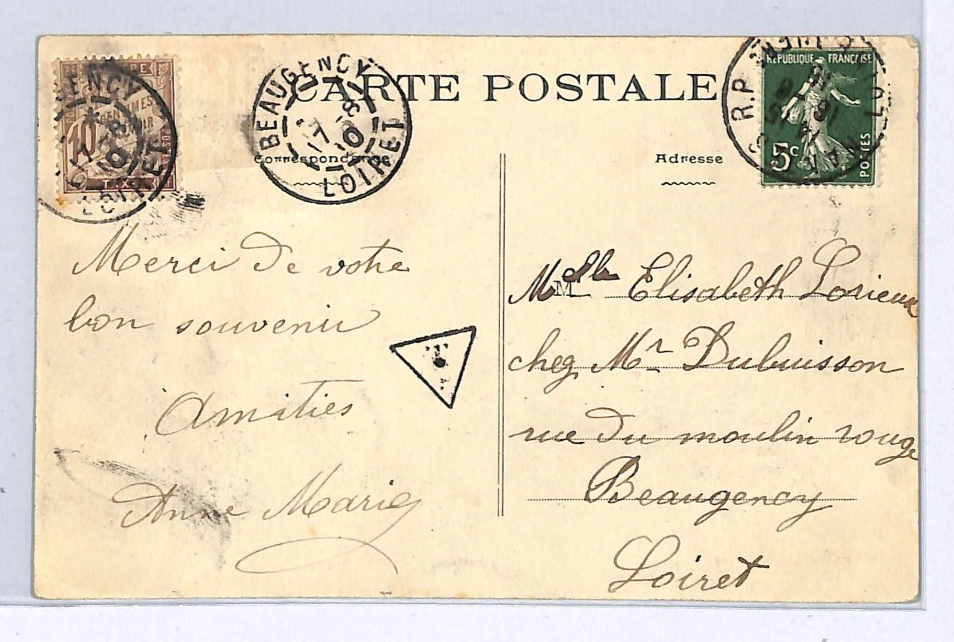 CARTE POSTALE
Correspondance
Adresse
BEAUGENCY
LOIRET
GENCY
LOIRET
10
REPUBLIQUE FRANÇAISE
5c
POSTES
R.P.
T
Merci de votre
bon souvenir
Amitiés
Anne Marie
Melle Elisabeth Lorieux
chez Mr Dubuisson
rue du moulin rouge
Beaugency
Loiret